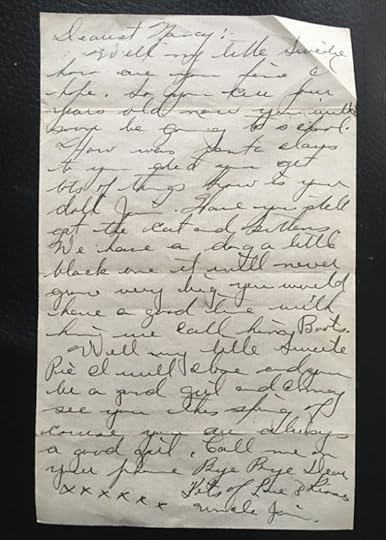 Dearest Nancy:-
Well my little Sweetie
how are you fine I
hope. So you are four
years old now you will
soon be going to school.
How was Santa Claus
to you glad you got
lots of things how is your
doll Jain. Have you still
got the cat and kittens
We have a dog a little
black one it will never
grow very big you would
have a good time with
him we call him Boots.
Well my little Sweetie
Pie I will close and you
be a good girl and I may
see you this spring of
course you are always
a good girl. Call me on
your phone Bye Bye Dear
Lots of Love & Kisses
x x x x x x Uncle Jim.